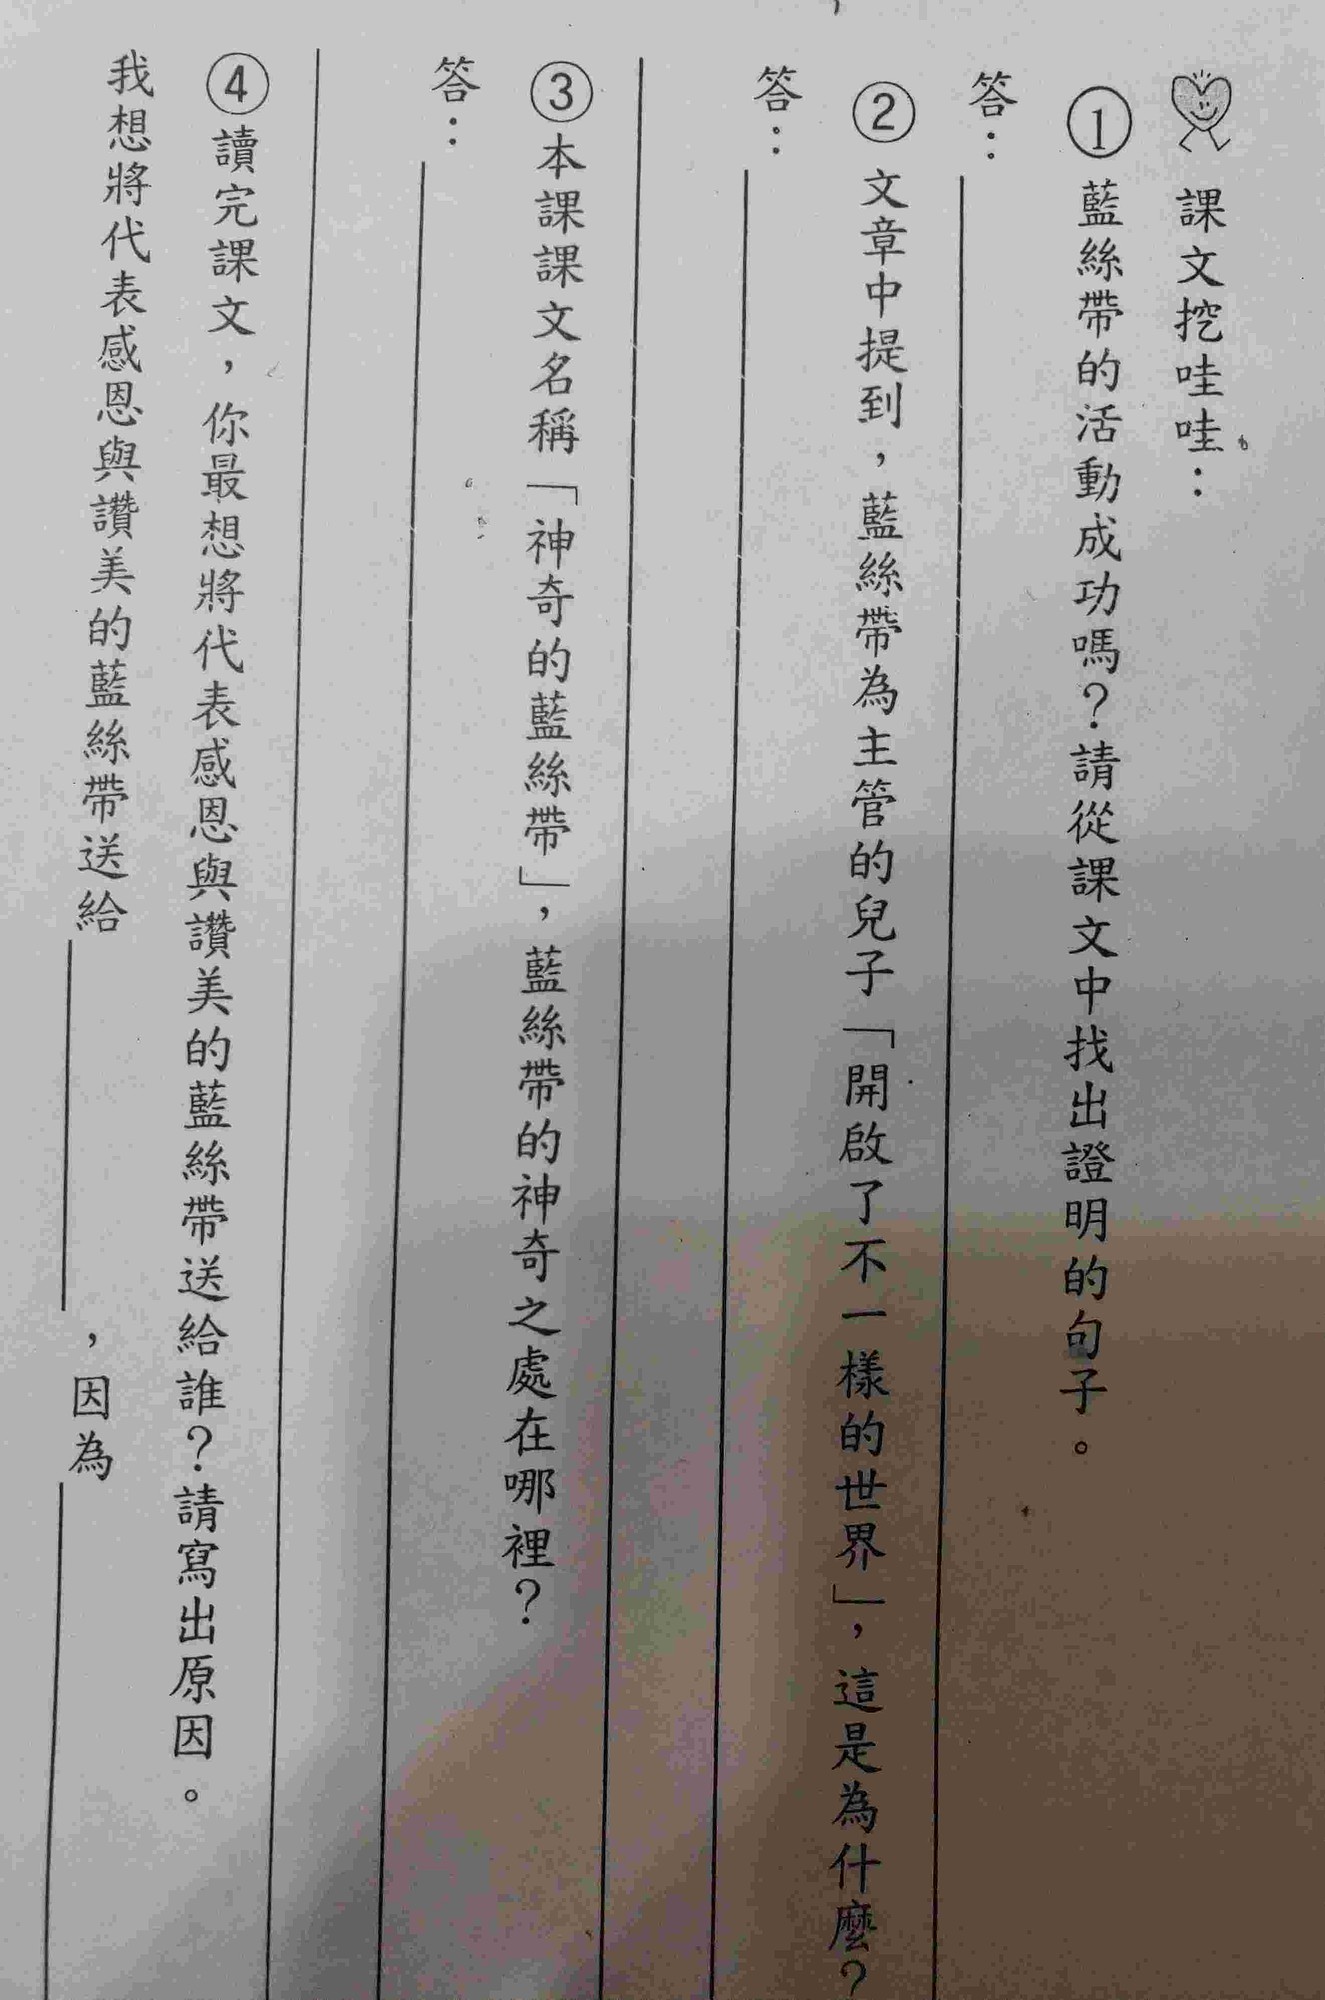 課文挖哇哇：
①藍絲帶的活動成功嗎？請從課文中找出證明的句子。
答：
②文章中提到，藍絲帶為主管的兒子「開啟了不一樣的世界」，這是為什麼？
答：
③本課課文名稱「神奇的藍絲帶」，藍絲帶的神奇之處在哪裡？
答：
④讀完課文，你最想將代表感恩與讚美的藍絲帶送給誰？請寫出原因。
我想將代表感恩與讚美的藍絲帶送給，因為